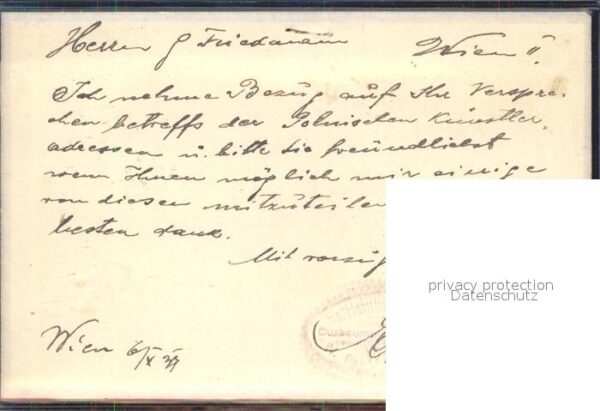 Herrn J Friedmann Wien II.
Ich nehme Bezug auf Ihr Verspre-
chen betreffs der Polnischen Künstler-
adressen u. bitte Sie freundlichst
wen Ihnen möglich mir einige
von diesen mitzuteilen
besten dank.
Mit vorzüg
privacy protection
Datenschutz
Wien 6/X 37